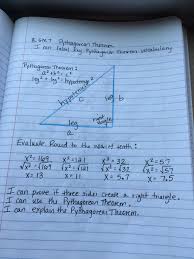 8.GM.7 Pythagorean Theorem
I can label my Pythagorean Theorem vocabulary
Pythagorean Theorem:
a² + b² = c²
leg² + leg² = hypotenuse²
hypotenuse
c
leg b
right angle
leg
a
Evaluate. Round to the nearest tenth:
x² = 169 x² = 121 x² = 32 x² = 57
√x² = √169 √x² = √121 √x² = √32 √x² = √57
x = 13 x = 11 x = 5.7 x = 7.5
I can prove if three sides create a right triangle.
I can use the Pythagorean Theorem.
I can explain the Pythagorean Theorem.